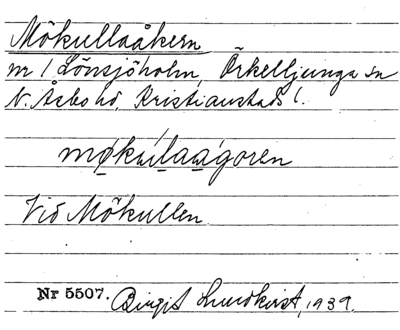 Mökullaåkern
m / Lönsjöholm, Örkelljunga sn
N. Åsbo hd, Kristianstads l.
Vid Mökullen.
Nr 5507. Birgit Lundkvist, 1939.